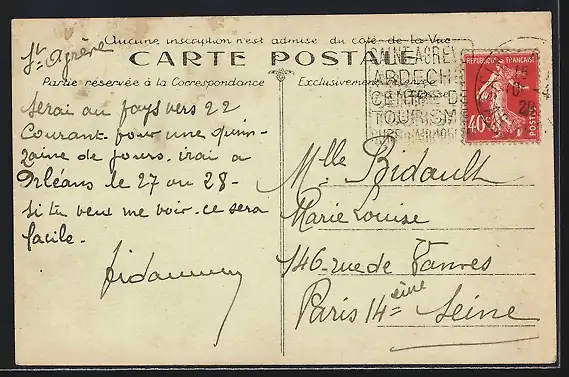 St Agrève
Aucune inscription n'est admise du côté de la Vue
CARTE POSTALE
Partie réservée à la Correspondance
Exclusivement
SAINT-AGRÈVE
ARDÈCHE
CENTRE DE
TOURISME
REPUBLIQUE FRANÇAISE
40c
POSTES
Serai au pays vers 22
Courant pour une quin-
zaine de jours. irai a
Orléans le 27 ou 28-
si tu veux me voir. ce sera
facile.
Mlle Bidault
Marie Louise
146 rue de Vanves
Paris 14=ème Seine